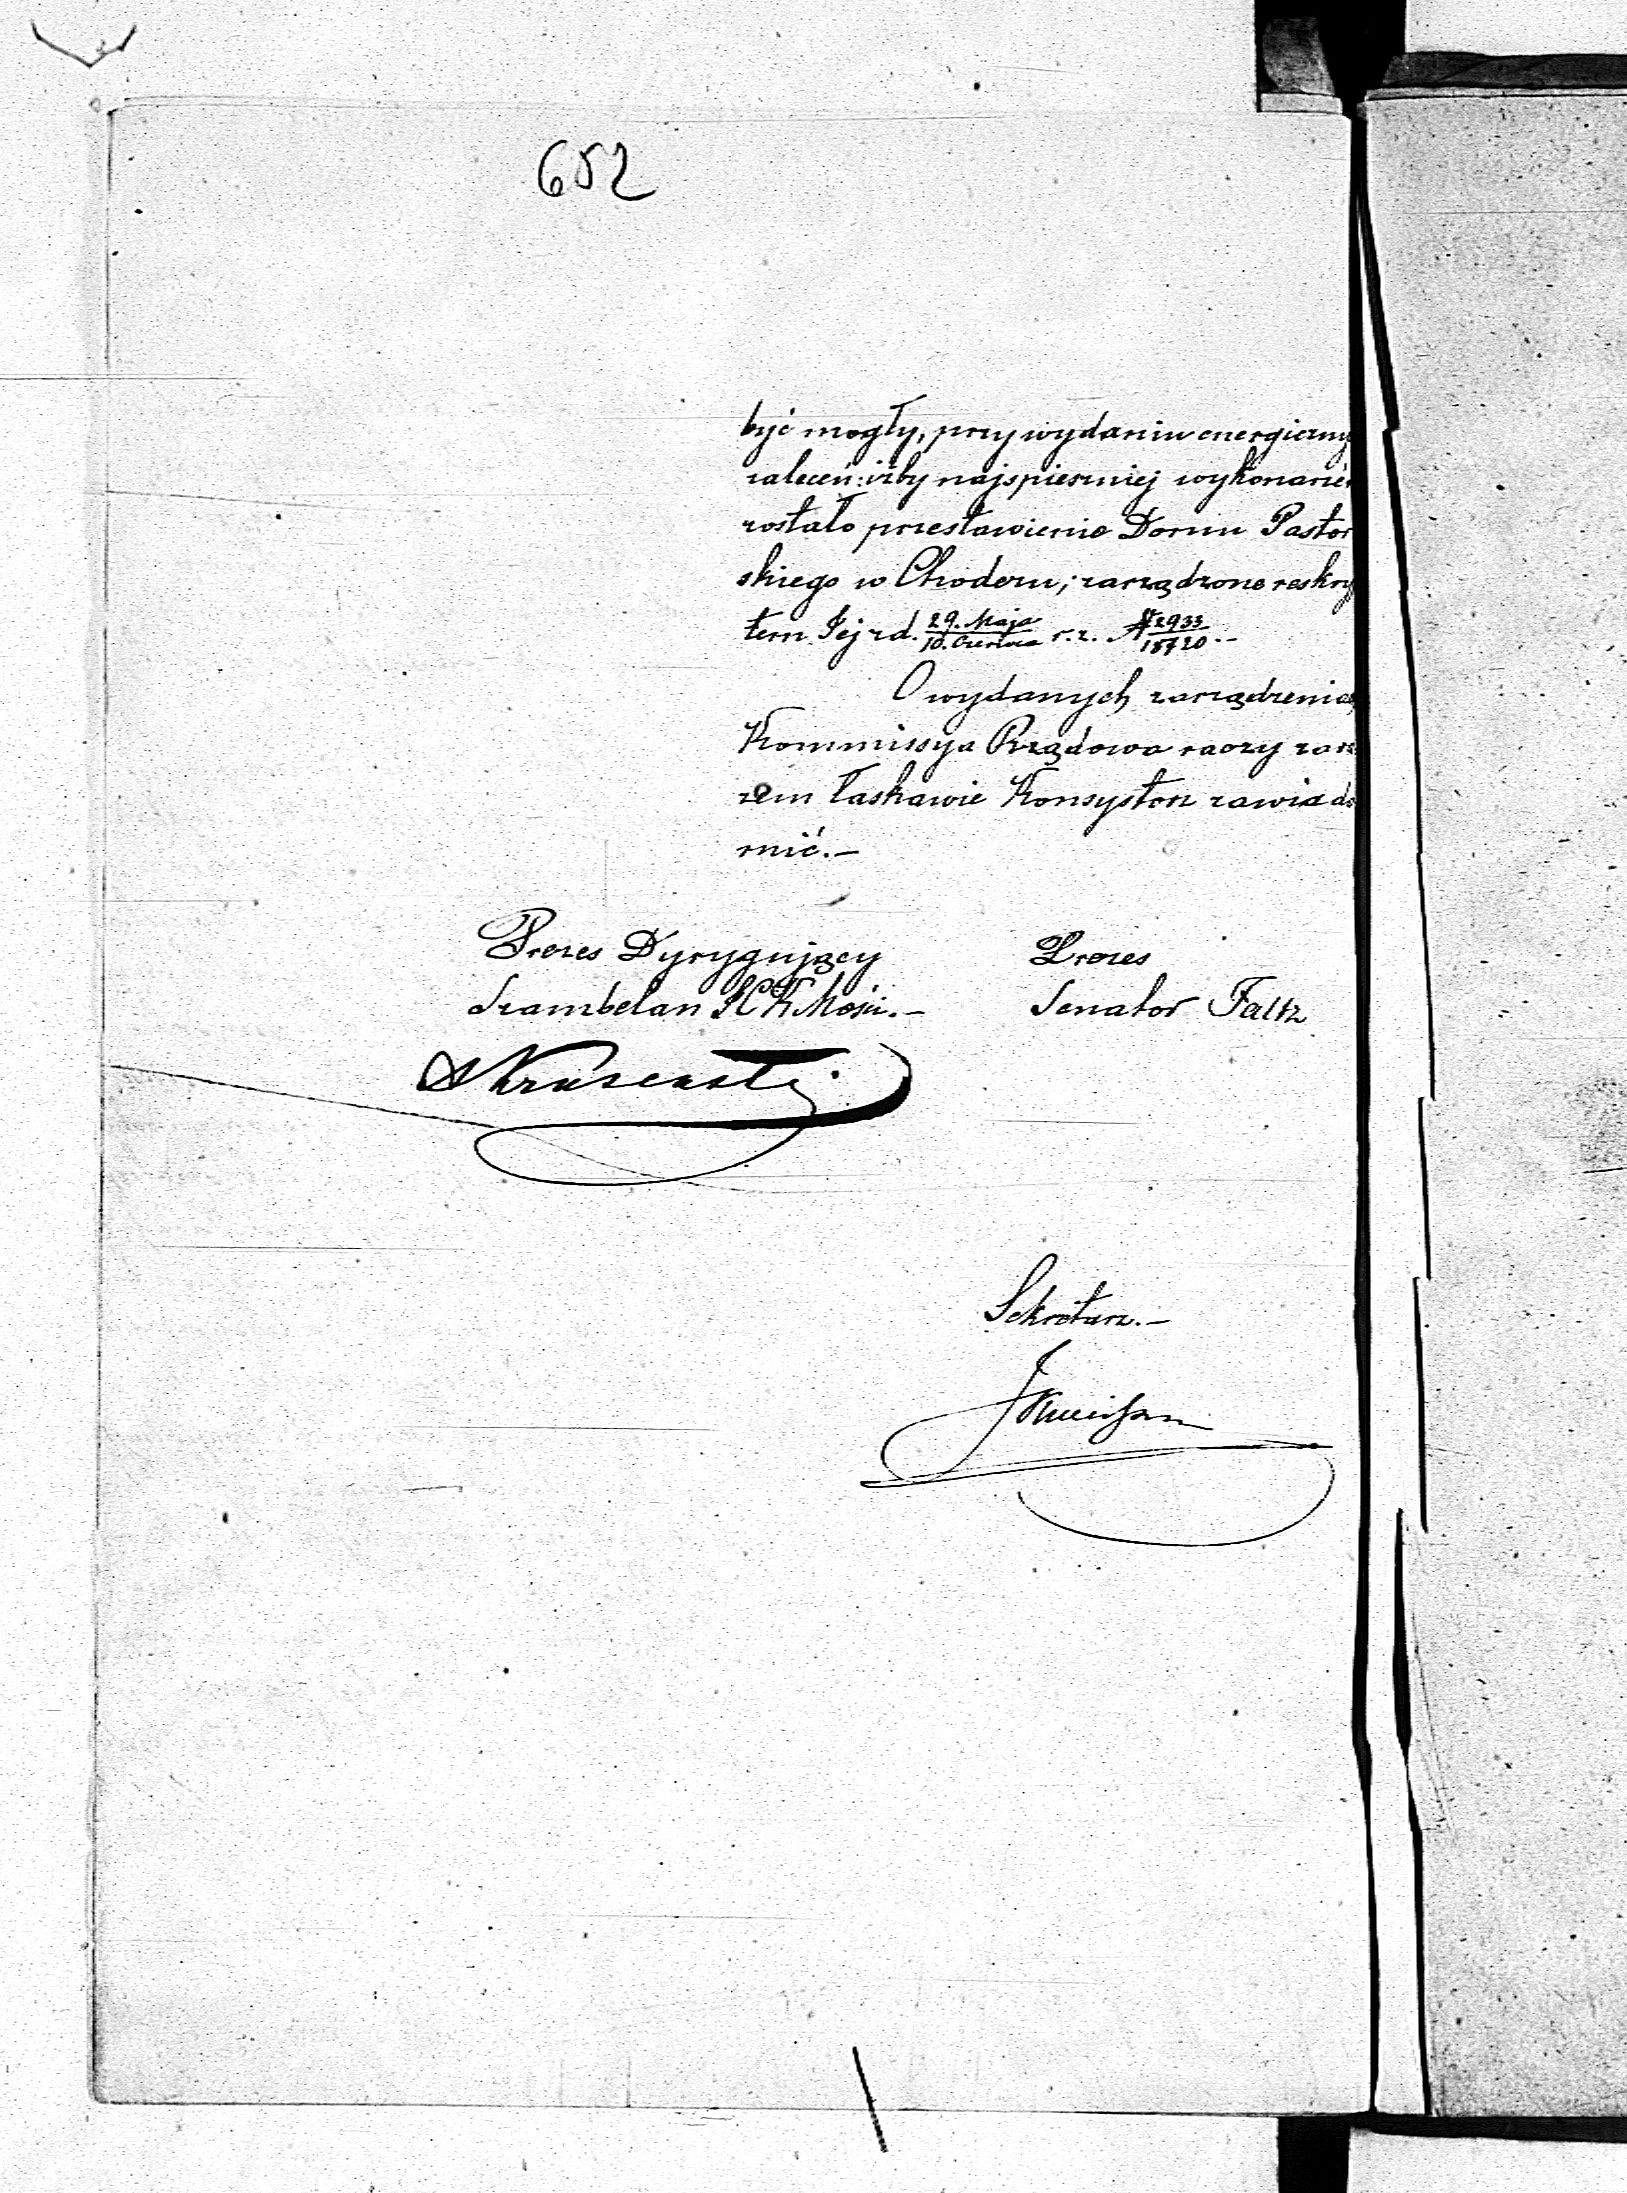 652
być mogły, przy wydaniu energiczny
zaleceń: iżby najspieszniej wykonane
zostało przestawienie Domu Pastor
skiego w Chodczu, zarządzone reskry
tem Jej z d. 29. Maja / 10. Czerwca r. z. № 2933 / 18720.-
O wydanych zarządzeniac
Kommissya Rządowa raczy zara
zem łaskawie Konsystorz zawiado
mić.—
Prezes Dyrygujący
Szambelan J C K Mości.—
Prezes
Senator Faltz
Sekretarz.—